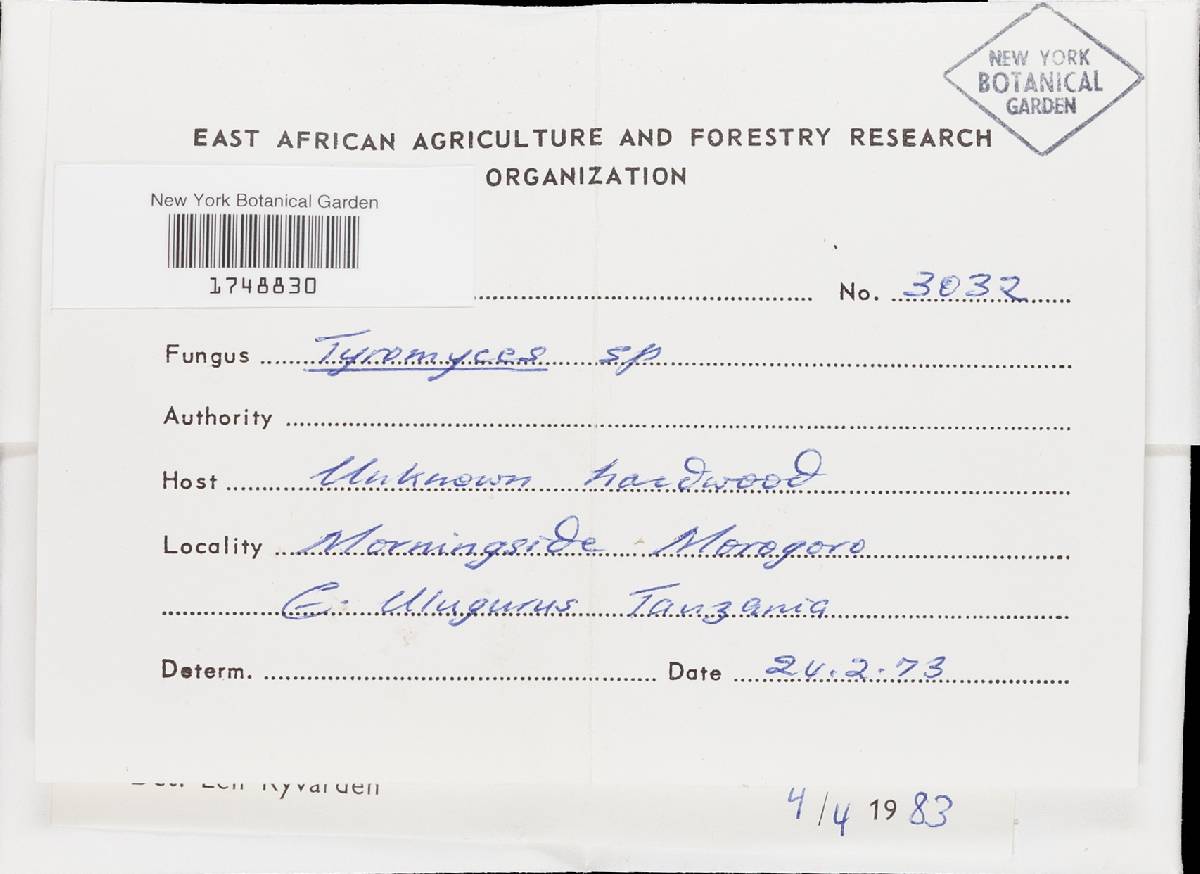 NEW YORK
BOTANICAL
GARDEN
EAST AFRICAN AGRICULTURE AND FORESTRY RESEARCH
ORGANIZATION
New York Botanical Garden
1748830
No. 3032
Fungus Tyromyces sp
Authority
Host Unknown hardwood
Locality Morningside Morogoro
E. Ulugurus Tanzania
Determ. Date 24.2.73
Ryvarden
4/4 1983